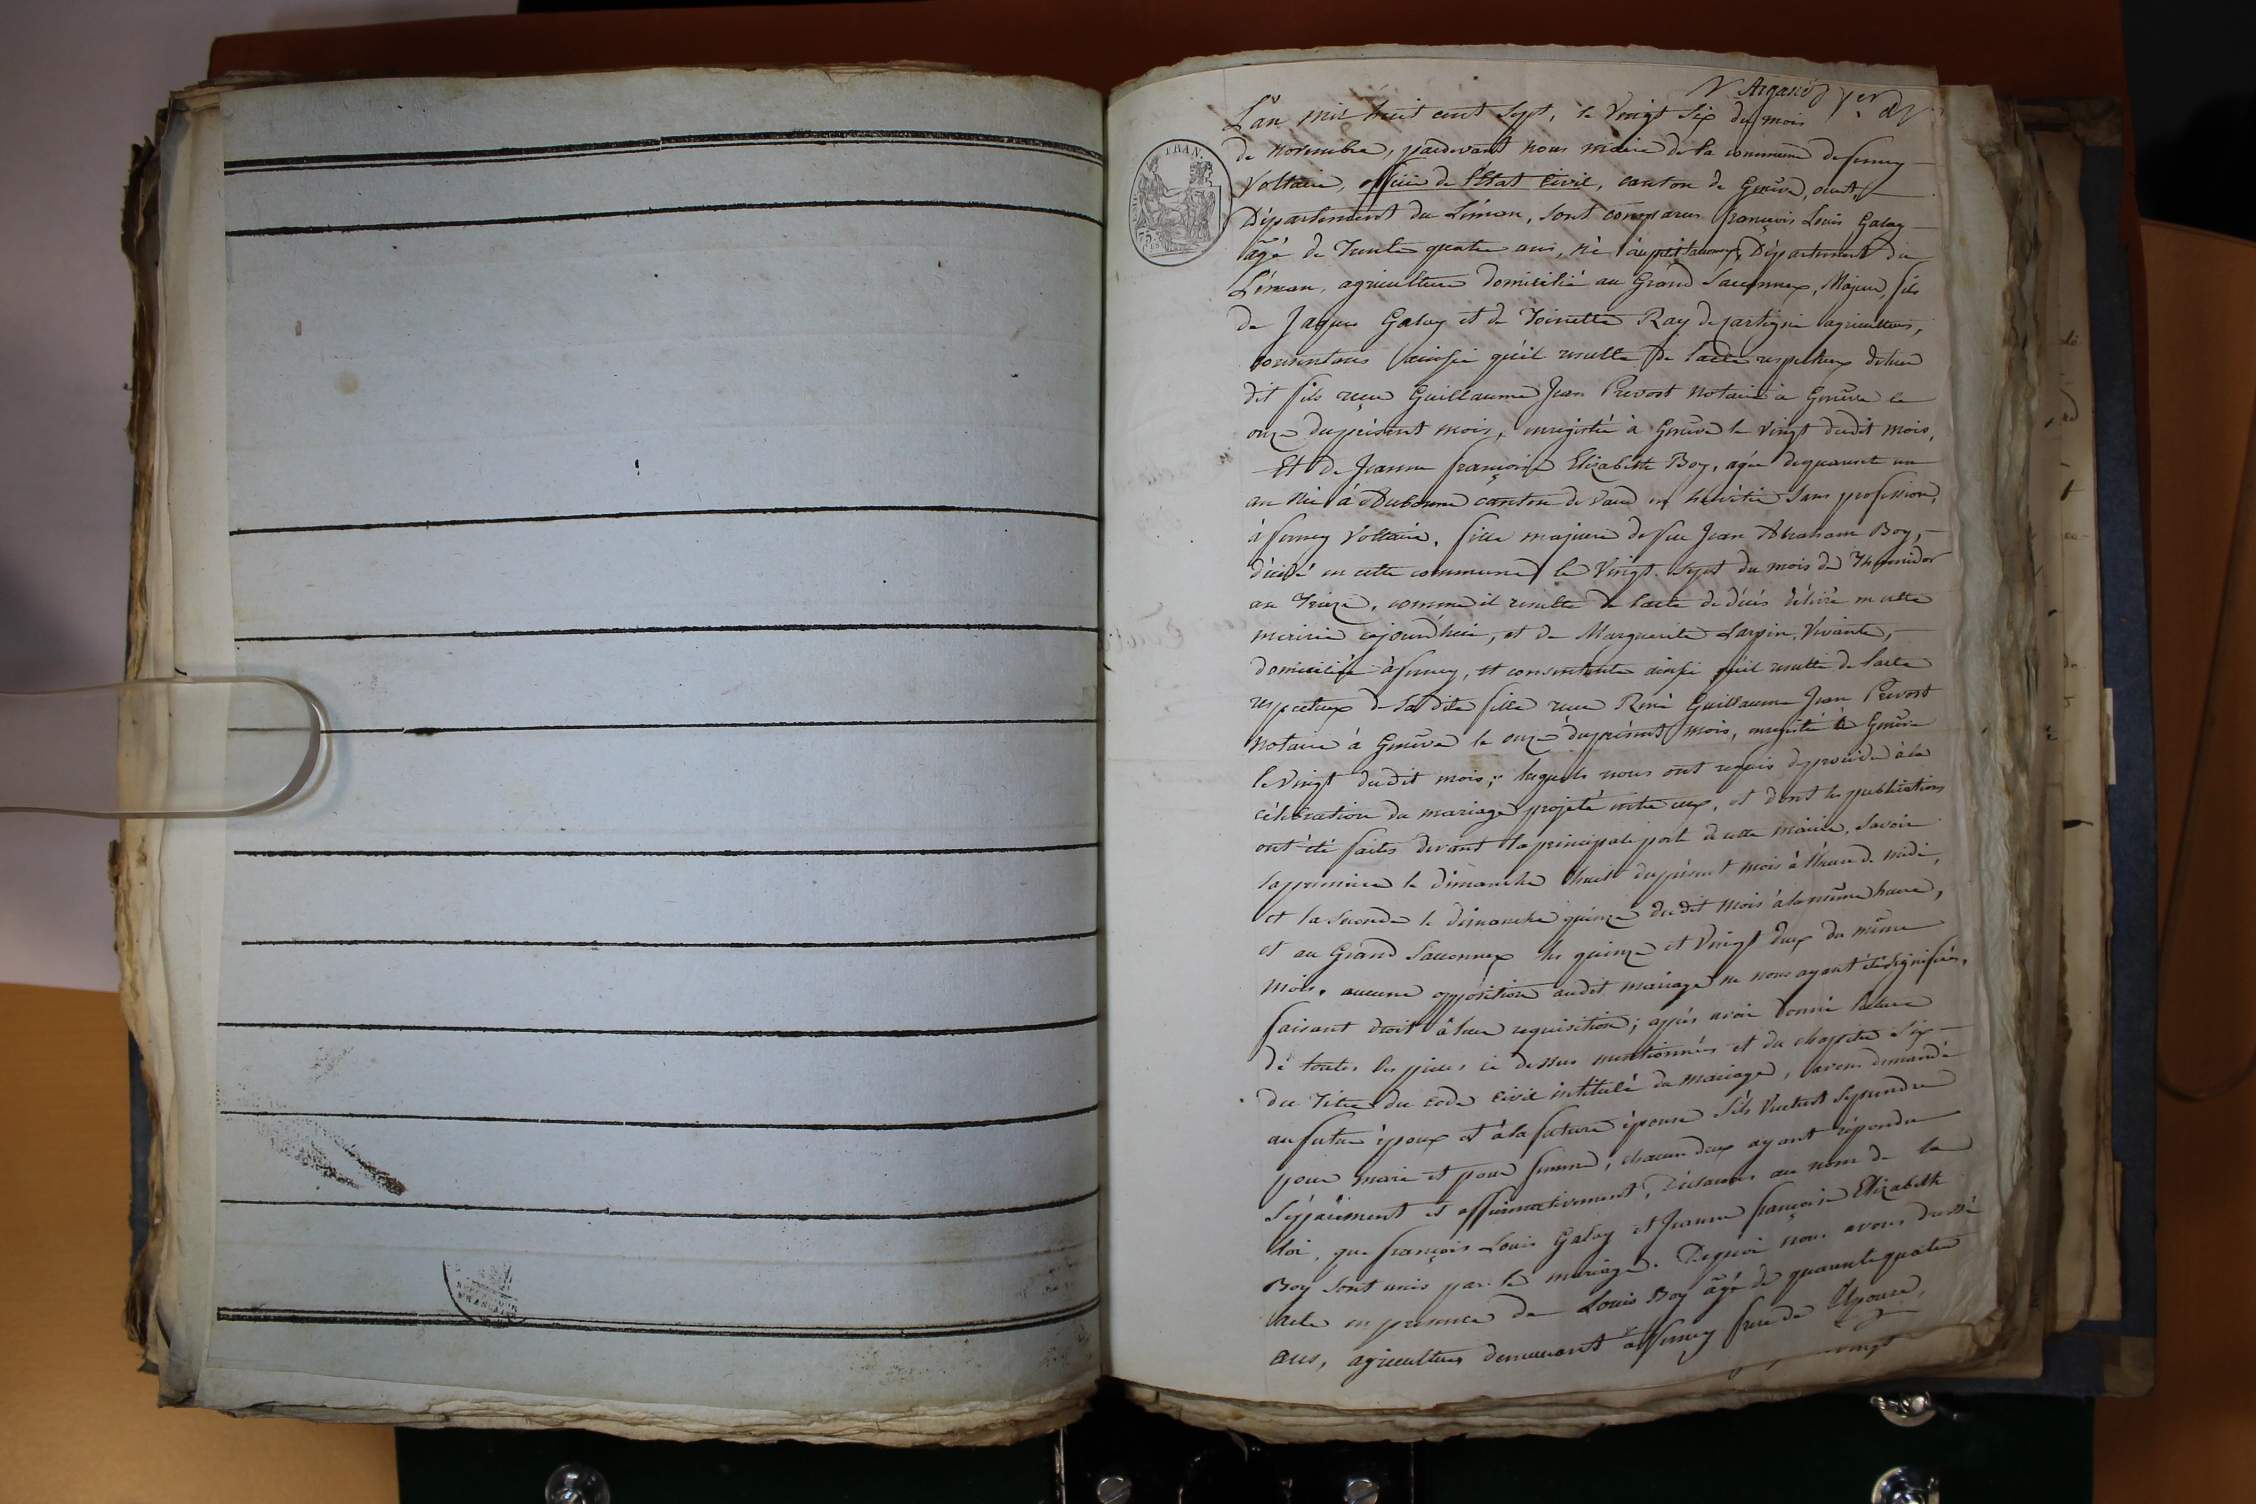 L'an mil huit cent sept, le vingt six du mois
de novembre, pardevant nous maire de la commune de ferney
Voltaire, officier de l'Etat Civil, canton de Genève,
Département du Léman, sont comparus françois Louis Galay
agé de Trente quatre ans, né au petit Saconnex, Département du
Léman, agriculteur domicilié au Grand Saconnex, Majeur, fils
de Jaques Galay et de Toinette Ray de cartigni agriculteurs,
consentans ainsi qu'il resulte de l'acte respectueux de leur
dit fils reçu Guillaume Jean Prevost notaire à Genève le
onze du présent mois, enregistré à Genève le vingt dudit mois,
Et de Jeanne françoise Elizabeth Boy, agée de quarente un
an née à Aubonne canton de Vaud en helvétie sans profession,
à ferney Voltaire, fille majeure de feu Jean Abraham Boy,
décédé en cette commune le Vingt-sept du mois de Thermidor
an Treize, comme il resulte de l'acte de décès délivré en cette
mairie cejourd'hui, et de Marguerite Larpin, Vivante,
domiciliée à ferney, et consentente ainsi qu'il resulte de l'acte
respectueux de sa dite fille reçu René Guillaume Jean Prevost
notaire à Genève le onze du présent mois, enregistré à Genève
le Vingt dudit mois; lesquels nous ont requis de proceder à la
célébration du mariage projeté entre eux, et dont les publications
ont été faites devant la principale porte de cette mairie, savoir
la premiere le dimanche huit du présent mois à l'heure de midi,
et la seconde le dimanche quinze dudit mois à la même heure,
et au Grand Saconnex les quinze et Vingt deux du même
mois, aucune opposition audit mariage ne nous ayant été signifiée,
faisant droit à leur requisition; après avoir donné lecture
de toutes les pieces ci dessus mentionnées et du chapitre six
du Titre du Code Civil intitulé du mariage, avons demandé
au futur époux et à la future épouse s'ils veulent se prendre
pour mari et pour femme, chacun deux ayant répondu
séparément et affirmativement, Déclarons au nom de la
loi, que françois Louis Galay et Jeanne françoise Elizabeth
Boy sont unis par le mariage. De quoi nous avons dressé
acte en presence de Louis Boy agé de quarente quatre
ans, agriculteur demeurant à ferney frere de l'Epouse,
vingt